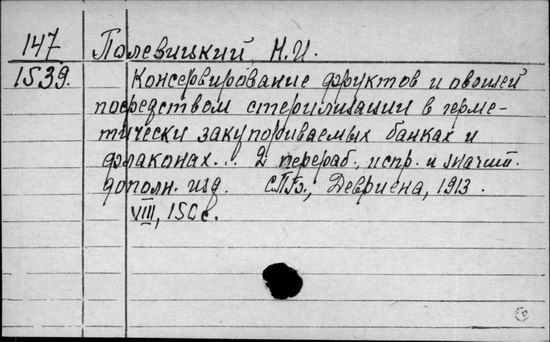 147 Полевицкий Н.И.
1539. Консервирование фруктов и овощей
посредством стерилизации в герме-
тически закупориваемых банках и
флаконах... 2 перераб., испр. и значит.
дополн. изд. СПб., Девриена, 1913.
VIII, 150 с.